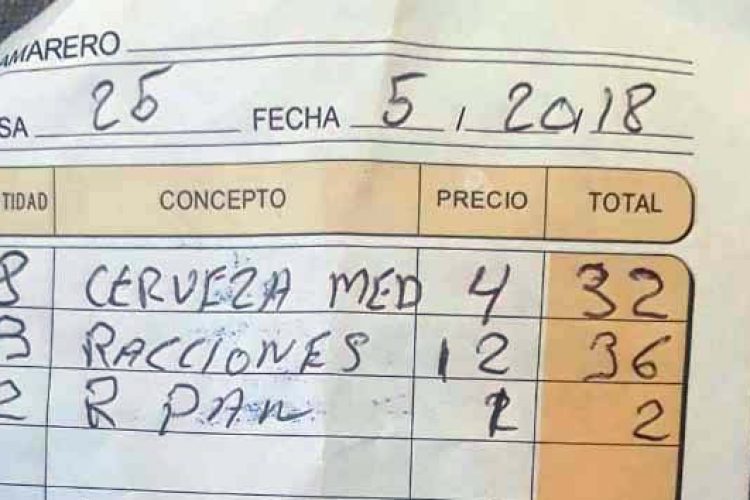 AMARERO
SA 25 FECHA 5 / 2018
TIDAD CONCEPTO PRECIO TOTAL
8 CERVEZA MED 4 32
3 RACCIONES 12 36
2 R PAN 1 2